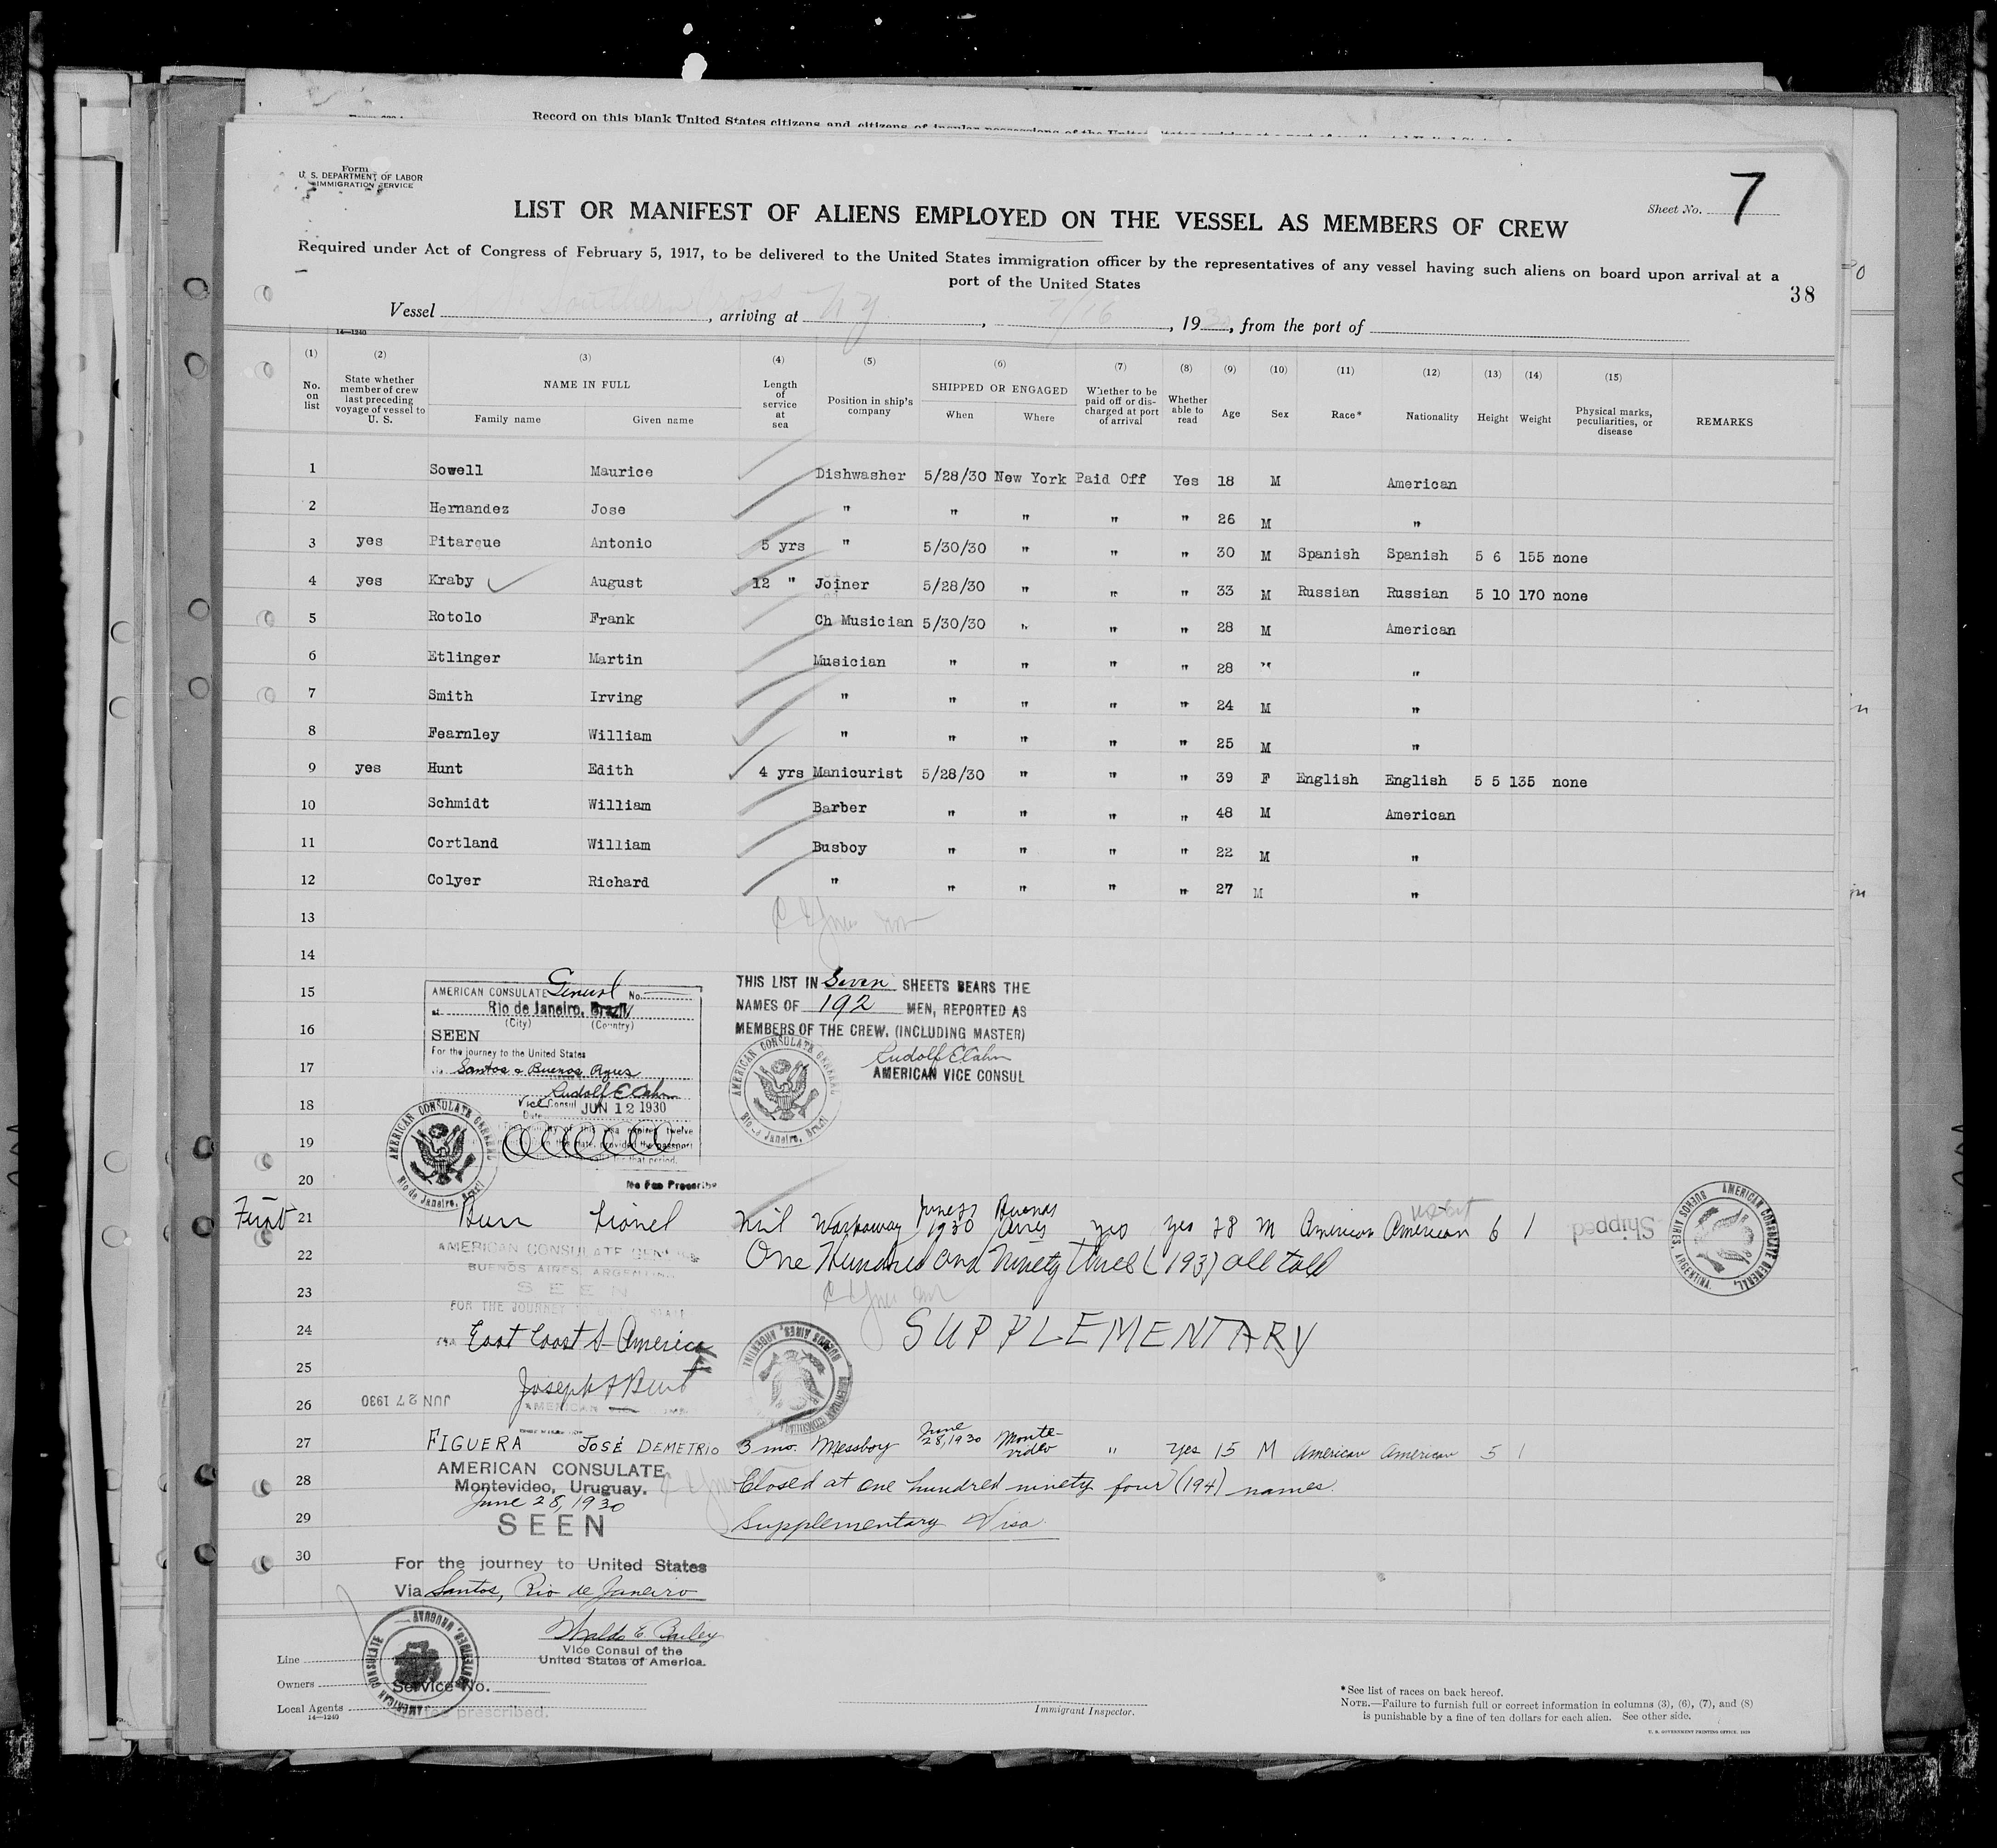 Record on this blank United States citizens and citizens of insular possessions of the United States
Form
U. S. DEPARTMENT OF LABOR
IMMIGRATION SERVICE
Sheet No. 7
LIST OR MANIFEST OF ALIENS EMPLOYED ON THE VESSEL AS MEMBERS OF CREW
Required under Act of Congress of February 5, 1917, to be delivered to the United States immigration officer by the representatives of any vessel having such aliens on board upon arrival at a
port of the United States
38
Vessel Southern Cross, arriving at N Y, 7/16, 1930, from the port of
14—1240
(1) (2) (3) (4) (5) (6) (7) (8) (9) (10) (11) (12) (13) (14) (15)
No. on list
State whether member of crew last preceding voyage of vessel to U. S.
NAME IN FULL
Family name Given name
Length of service at sea
Position in ship's company
SHIPPED OR ENGAGED
When Where
Whether to be paid off or discharged at port of arrival
Whether able to read
Age
Sex
Race*
Nationality
Height
Weight
Physical marks, peculiarities, or disease
REMARKS
1 Sowell Maurice Dishwasher 5/28/30 New York Paid Off Yes 18 M American
2 Hernandez Jose " " " " " 26 M "
3 yes Pitarque Antonio 5 yrs " 5/30/30 " " " 30 M Spanish Spanish 5 6 155 none
4 yes Kraby August 12 " Joiner 5/28/30 " " " 33 M Russian Russian 5 10 170 none
5 Rotolo Frank Ch Musician 5/30/30 " " " 28 M American
6 Etlinger Martin Musician " " " " 28 M "
7 Smith Irving " " " " " 24 M "
8 Fearnley William " " " " " 25 M "
9 yes Hunt Edith 4 yrs Manicurist 5/28/30 " " " 39 F English English 5 5 135 none
10 Schmidt William Barber " " " " 48 M American
11 Cortland William Busboy " " " " 22 M "
12 Colyer Richard " " " " " 27 M "
13
14
15
16
17
18
19
20
AMERICAN CONSULATE General No.
at Rio de Janeiro, Brazil
(City) (Country)
SEEN
For the journey to the United States
Santos & Buenos Ayres
Rudolf E Cahn
Vice Consul
Date JUN 12 1930
No Fee Prescribe
AMERICAN CONSULATE GENERAL
Rio de Janeiro, Brazil
THIS LIST IN Seven SHEETS BEARS THE
NAMES OF 192 MEN, REPORTED AS
MEMBERS OF THE CREW. (INCLUDING MASTER)
Rudolf E Cahn
AMERICAN VICE CONSUL
AMERICAN CONSULATE GENERAL
Rio de Janeiro, Brazil
First 21 Burr Lionel Nil Workaway June 27 1930 Buenos Aires yes yes 28 M American American 6 1
Shipped
AMERICAN CONSULATE GENERAL, BUENOS AIRES, ARGENTINA
22 One Hundred and Ninety three (193) all told
AMERICAN CONSULATE GENERAL
BUENOS AIRES, ARGENTINA
SEEN
23
FOR THE JOURNEY TO UNITED STATES
24 SUPPLEMENTARY
VIA East Coast S- America
25
Joseph F Burt
26 JUN 27 1930
AMERICAN VICE CONSUL
27 FIGUERA JOSÉ DEMETRIO 3 mo. Messboy June 28, 1930 Montevideo " Yes 15 M American American 5 1
28 Closed at one hundred ninety four (194) names.
AMERICAN CONSULATE
Montevideo, Uruguay.
June 28, 1930
29 Supplementary Visa.
SEEN
30
For the journey to United States
Via Santos, Rio de Janeiro
Waldo E. Bailey
Vice Consul of the
United States of America.
AMERICAN CONSULATE MONTEVIDEO, URUGUAY
Service No.
prescribed.
Line
Owners
Local Agents
14—1240
Immigrant Inspector.
*See list of races on back hereof.
NOTE.—Failure to furnish full or correct information in columns (3), (6), (7), and (8)
is punishable by a fine of ten dollars for each alien. See other side.
U. S. GOVERNMENT PRINTING OFFICE: 1929